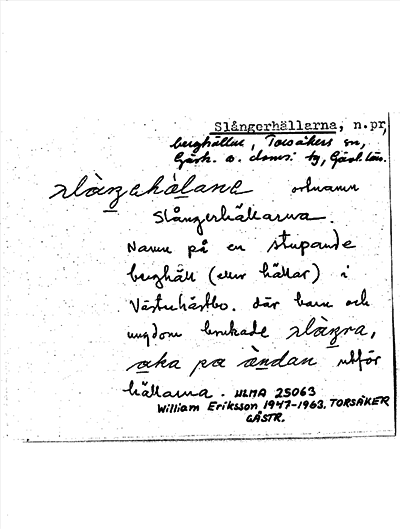 Slångerhällarna, n.pr,
berghällar, Torsåkers sn,
Gästr. ö. doms. tg, Gävl. län.
slàngehälane ortnamn
Slångerhällarna.
Namn på en stupande
berghäll (eller hällar) i
Västerhästbo. där barn och
ungdom brukade slàngra,
aka pa ändan utför
hällarna. ULMA 25063
William Eriksson 1947-1963. TORSÅKER
GÄSTR.